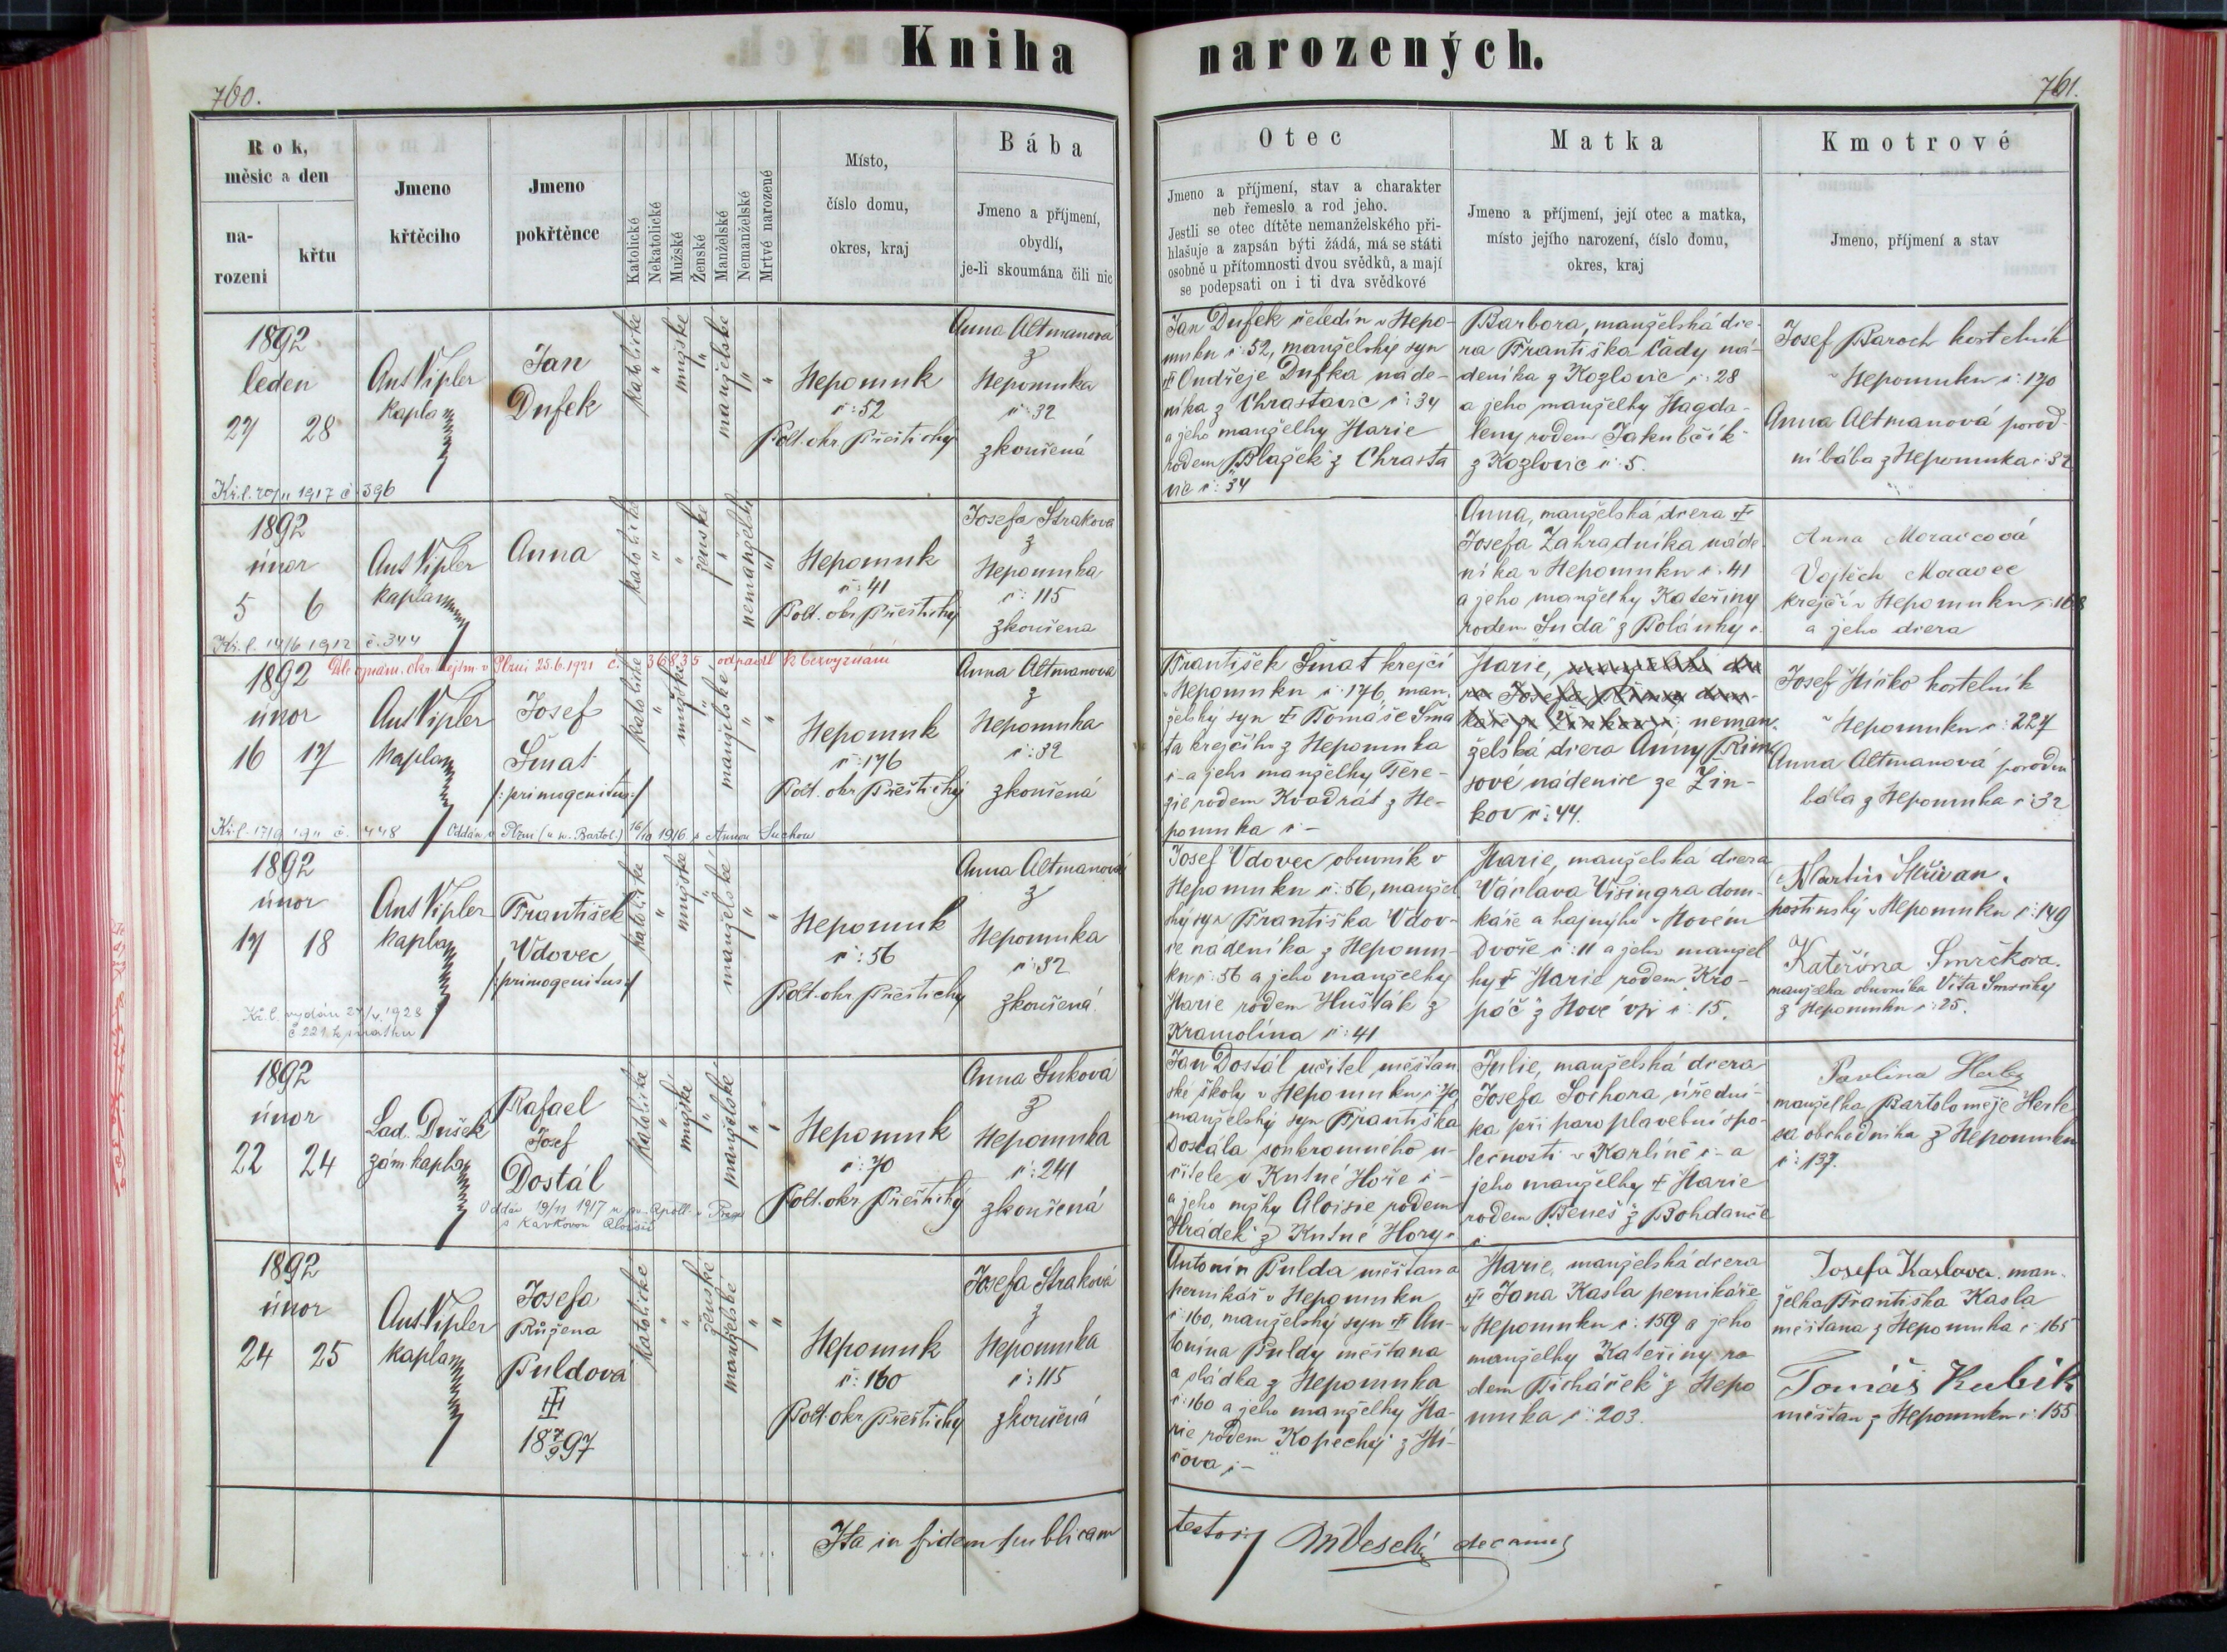 Kniha narozených.
760.
761.
Rok,
měsíc a den
na-
rozeni
křtu
Jmeno
křtěcího
Jmeno
pokřtěnce
Katolické
Nekatolické
Mužské
Ženské
Manželské
Nemanželské
Mrtvé narozené
Místo,
číslo domu,
okres, kraj
Bába
Jmeno a příjmení,
obydlí,
je-li skoumána čili nic
Otec
Jmeno a příjmení, stav a charakter
neb řemeslo a rod jeho.
Jestli se otec dítěte nemanželského při-
hlašuje a zapsán býti žádá, má se státi
osobně u přítomnosti dvou svědků, a mají
se podepsati on i ti dva svědkové
Matka
Jmeno a příjmení, její otec a matka,
místo jejího narození, číslo domu,
okres, kraj
Kmotrové
Jmeno, příjmení a stav
1892
leden
27 28
Ant Vipler
kaplan
Jan
Dufek
katolické
mužské
manželské
Nepomuk
č: 52
Polit. okr. Přeštický
Anna Altmanová
z
Nepomuka
č: 32
zkoušená
Jan Dufek čeledín v Nepo-
muku č: 52, manželský syn
Ondřeje Dufka náde-
níka z Chrastavic č: 34
a jeho manželky Marie
rodem Blažek z Chrasta
vic č: 34
Barbora, manželská dce-
ra Františka Čády ná-
deníka z Kozlovic č: 28
a jeho manželky Magda-
leny rodem Jakubčík
z Kozlovic č: 5.
Josef Baroch kostelník
v Nepomuku č: 170
Anna Altmanová porod-
ní bába z Nepomuka č: 32
1917 č 396
1892
únor
5 6
Ant Vipler
kaplan
Anna
katolické
ženské
nemanželské
Nepomuk
č: 41
Polit. okr. Přeštický
Josefa Straková
z
Nepomuka
č: 115
zkoušena
Anna, manželská dcera
Josefa Zahradníka náde-
níka v Nepomuku č. 41
a jeho manželky Kateřiny
rodem Suda z Polánky č.
Anna Moravcová
Vojtěch Moravec
krejčí v Nepomuku č: 168
a jeho dcera
Kř. l. 14/6 1912 č. 344
Dle oznám. okr. hejtm. v Plzni 25.6.1921 č. 36835 odpadl k bezvyznání
1892
únor
16 17
Ant Vipler
kaplan
Josef
Šmat
/:primogenitus:/
katolické
mužské
manželské
Nepomuk
č: 176
Polit. okr. Přeštický
Anna Altmanova
z
Nepomuka
č: 32
zkoušená
František Šmat krejčí
v Nepomuku č: 176, man-
želský syn Tomáše Šma
ta krejčího z Nepomuka
č - a jeho manželky Tere-
zie rodem Kvadrát z Ne-
pomuka č -
Marie,
neman-
želská dcera Anny
sové nádenice ze Žin-
kov č: 44.
Josef Mičko kostelník
v Nepomuku č: 227
Anna Altmanová porodní
bába z Nepomuka č: 32
Kř. l. 17/9 1911 č. 448 Oddán v Plzni (u sv. Bartol.) 16/10 1916 s Annou Suchou
1892
únor
17 18
Ant Vipler
kaplan
František
Vdovec
/:primogenitus:/
katolické
mužské
manželské
Nepomuk
č: 56
Polit. okr. Přeštický
Anna Altmanová
z
Nepomuka
č: 32
zkoušená
Josef Vdovec obuvník v
Nepomuku č: 56, manžel
ský syn Františka Vdov-
ce nádeníka z Nepomu-
ku č: 56 a jeho manželky
Marie rodem Hušták z
Kramolína č: 41
Marie, manželská dcera
Václava Visingra dom-
káře a hajného v Novém
Dvoře č: 11 a jeho manžel
ky Marie rodem Kro-
páč z Nové vsi č: 15.
Martin
hostinský v Nepomuku č: 149
Kateřina Smrčkova.
manželka obuvníka Víta Smrčky
z Nepomuku č: 25.
Kř. l. vydán 27/V. 1928
č 221
1892
únor
22 24
Lad. Dušek
zám. kaplan
Rafael
Josef
Dostál
katolické
mužské
manželské
Nepomuk
č: 70
Polit. okr. Přeštický
Anna Suková
z
Nepomuka
č: 241
zkoušená
Jan Dostál učitel měšťan
ské školy v Nepomuku č: 70
manželský syn Františka
Dostála soukromného u-
čitele v Kutné Hoře č -
a jeho mžky Aloisie rodem
Hrádek z Kutné Hory č
Julie, manželská dcera
Josefa Sochora, úřední-
ka při paroplavební spo-
lečnosti v Karlíně č - a
jeho manželky Marie
rodem Beneš z Bohdanče
č
Pavlina
manželka Bartoloměje Herle
sa obchodníka z Nepomuku
č: 137.
Oddán 19/11 1917 u sv. Apoll. v Praze
s Kavkovou Aloisií
1892
únor
24 25
Ant Vipler
kaplan
Josefa
Růžena
Puldova
18 7/9 97
katolické
ženské
manželské
Nepomuk
č: 160
Polit. okr. Přeštický
Josefa Straková
z
Nepomuka
č: 115
zkoušená
Antonín Pulda měšťan a
perníkář v Nepomuku
č: 160, manželský syn An-
tonína Puldy měšťana
a sládka z Nepomuka
č: 160 a jeho manželky Ma-
rie rodem Kopecký z Mi-
čova č -
Marie, manželská dcera
Jana Kasla perníkáře
v Nepomuku č: 159 a jeho
manželky Kateřiny ro
dem Picháček z Nepo
muka č: 203.
Josefa Kaslova. man-
želka Františka Kasla
měšťana z Nepomuka č: 165
Tomáš Kubík
měšťan z Nepomuku č: 155
Ita in fidem publicam
testor
Veselý decanus